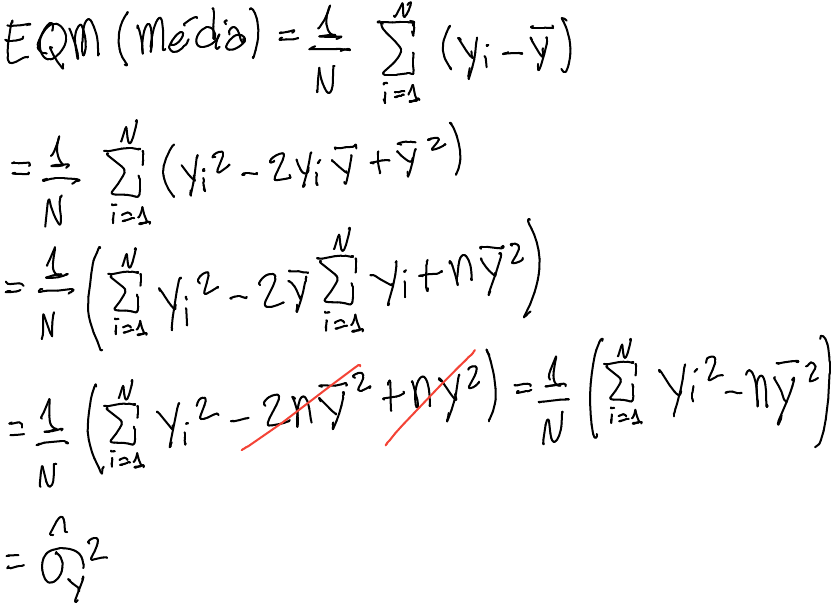 EQM (média) = 1/N ∑_{i=1}^{N} (yi - ȳ)
= 1/N ∑_{i=1}^{N} (yi² - 2yi ȳ + ȳ²)
= 1/N (∑_{i=1}^{N} yi² - 2ȳ ∑_{i=1}^{N} yi + nȳ²)
= 1/N (∑_{i=1}^{N} yi² - 2nȳ² + ny²) = 1/N (∑_{i=1}^{N} yi² - nȳ²)
= σ̂_y²